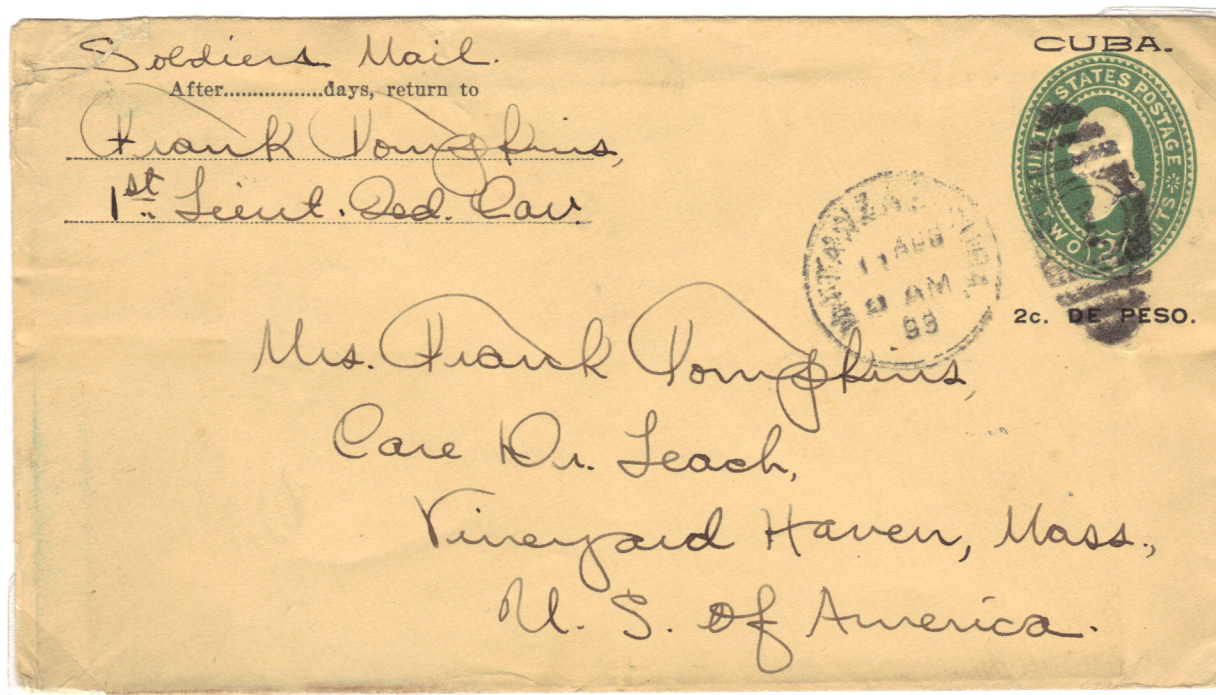 Soldiers Mail.
After................days, return to
Frank Tompkins,
1st. Lieut. 2ed. Cav.
CUBA.
UNITED STATES POSTAGE
TWO 2 CENTS
2c. DE PESO.
MATANZAS, CUBA.
11 AUG
AM
99
Mrs. Frank Tompkins,
Care Dr. Leach,
Vineyard Haven, Mass.,
U. S. of America.